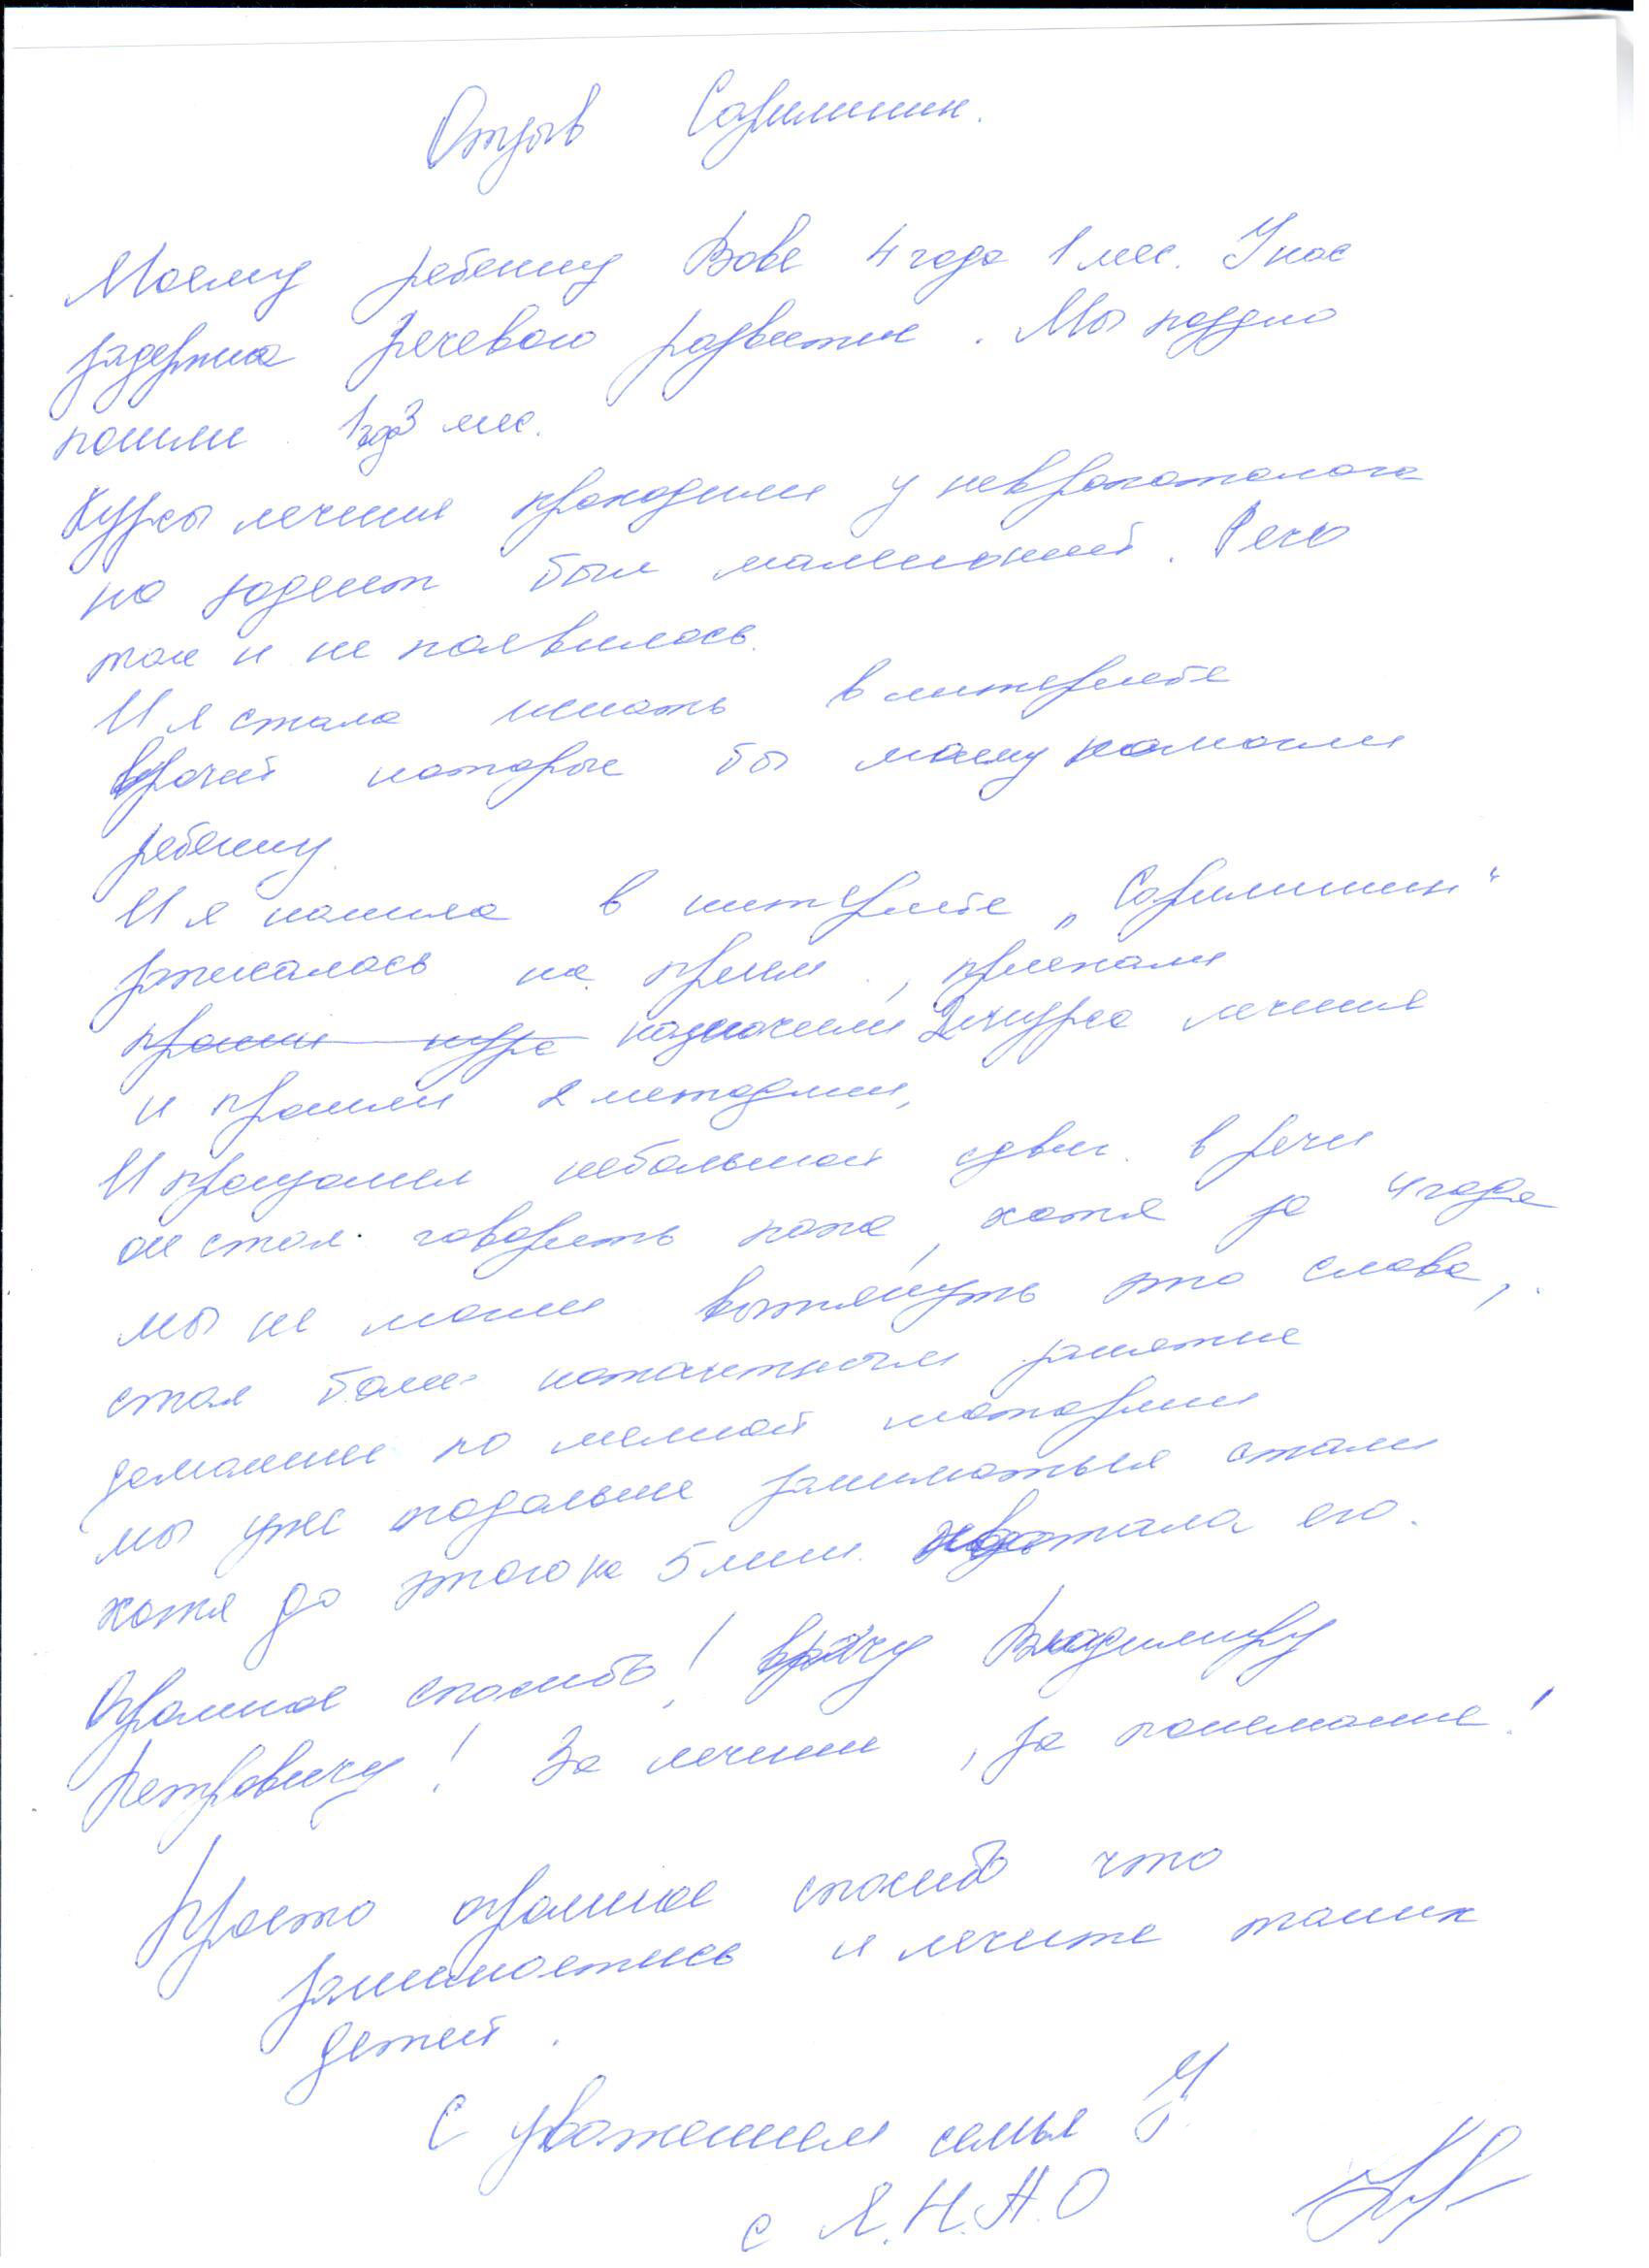 Отзыв Сарклиник.
Моему ребенку Вове 4 года 1 мес. У нас
задержка речевого развития. Мы поздно
пошли 1год3 мес.
Курсы лечение проходили у невропатолога
но эффект был маленький. Речь
так и не появилась.
И я стала искать в интернете
врачей которые бы моему помогли
ребенку.
И я нашла в интернете „Сарклиник"
записалась на прием, приехали
прошли курс назначили 2 курса лечения
и прошли 2 методики,
И произошел небольшой сдвиг в речи
он стал говорить папа, хотя за 4 года
мы не могли вытянуть это слова,
стал более контактным занятие
домашние по мелкой моторики
мы уже подольше заниматься стали
хотя до этого на 5 мин хватала его.
Огромное спасибо! врачу Владимиру
Петровичу! За лечение, за понимание!
Просто огромное спасибо что
занимаетесь и лечите таких
детей.
С уважением семья У.
с Я.Н.А.О